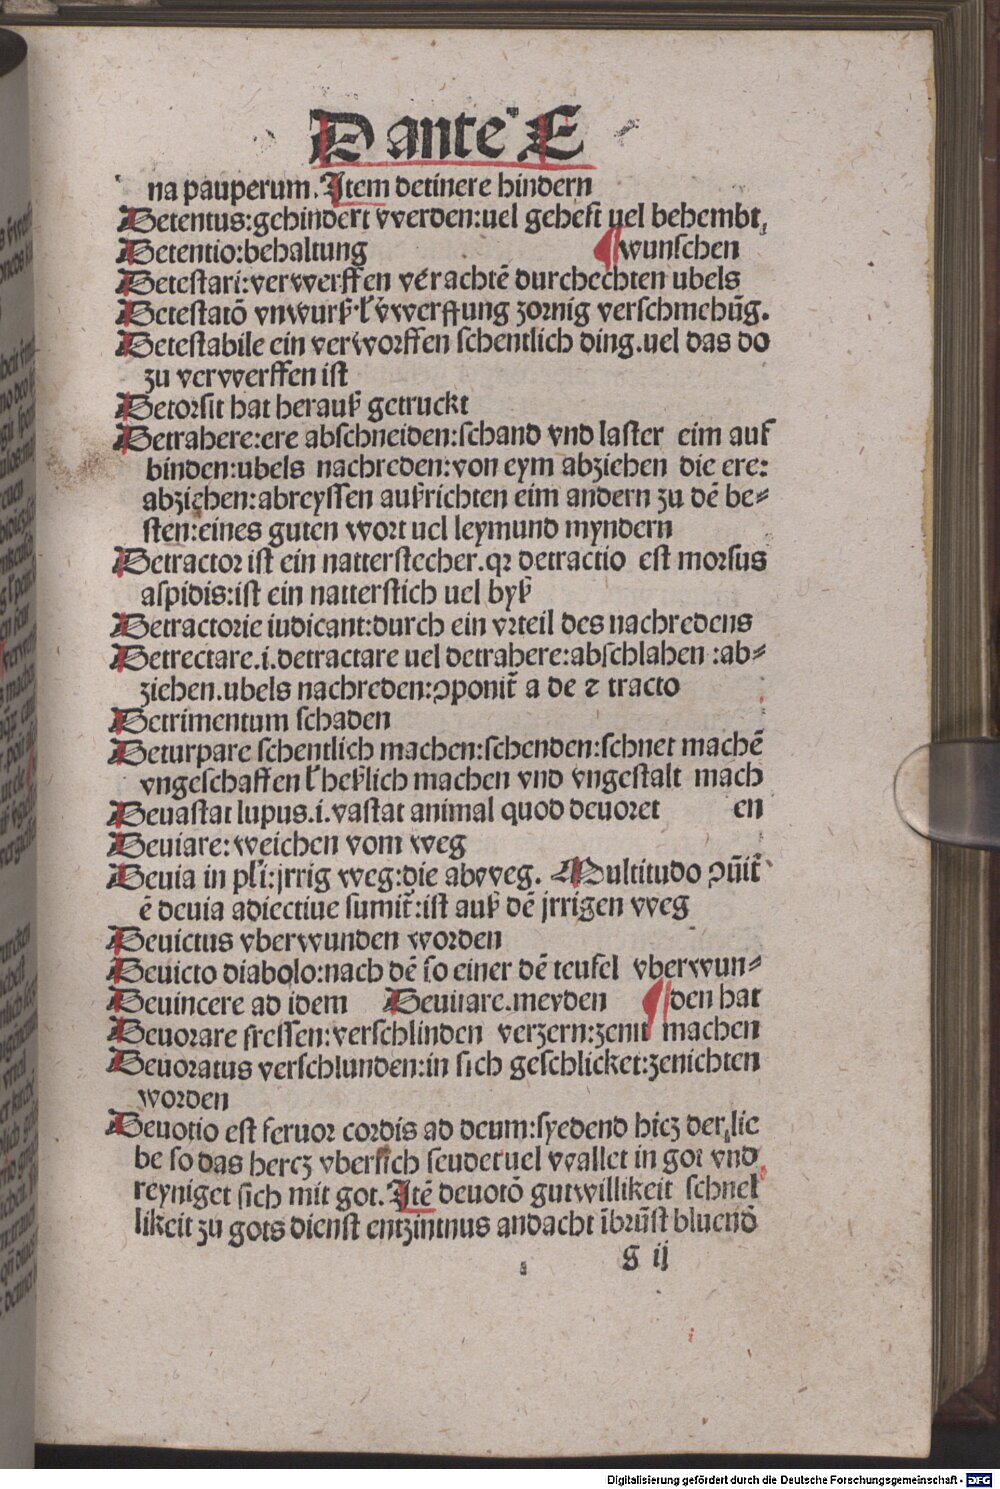 Dante E
na pauperum. Item detinere hindern
Detentus:gehindert werden:uel geheft uel behembt,
Detentio:behaltung ¶wunschen
Detestari:verwerffen verachtē durchechten ubels
Detestatō vnwurß.ł v̄werffung zornig verschmehūg.
Detestabile ein verworffen schentlich ding.uel das do
zu verwerffen ist
Detorsit hat herauß getruckt
Detrahere:ere abschneiden:schand vnd laster eim auf
binden:ubels nachreden:von eym abziehen die ere:
abziehen:abreyssen aufrichten eim andern zu dē be⸗
sten:eines guten wort uel leymund myndern
Detractor ist ein natterstecher.qꝛ detractio est morsus
aspidis:ist ein natterstich uel byß
Detractorie iudicant:durch ein vrteil des nachredens
Detrectare.i.detractare uel detrahere:abschlahen :ab⸗
ziehen.ubels nachreden:ↄponit̄ a de ⁊ tracto
Detrimentum schaden
Deturpare schentlich machen:schenden:schnet machē
vngeschaffen ł heßlich machen vnd vngestalt mach
Deuastat lupus.i.vastat animal quod deuoret en
Deuiare:weichen vom weg
Deuia in płi:jrrig weg:die abweg. Multitudo ↄūit̄
ē deuia adiectiue sumit̄:ist auß dē jrrigen weg
Deuictus vberwunden worden
Deuicto diabolo:nach dē so einer dē teufel vberwun⸗
Deuincere ad idem Deuitare.meyden ¶den hat
Deuorare fressen:verschlinden verzern:zenit machen
Deuoratus verschlunden:in sich geschlicket:zenichten
worden
Deuotio est feruor cordis ad deum:syedend hicz der lie
be so das hercz vbersich seudet uel wallet in got vnd
reyniget sich mit got. Itē deuotō gutwillikeit schnel
likeit zu gots dienst entzintnus andacht ībrūst bluend
g ij
Digitalisierung gefördert durch die Deutsche Forschungsgemeinschaft - DFG